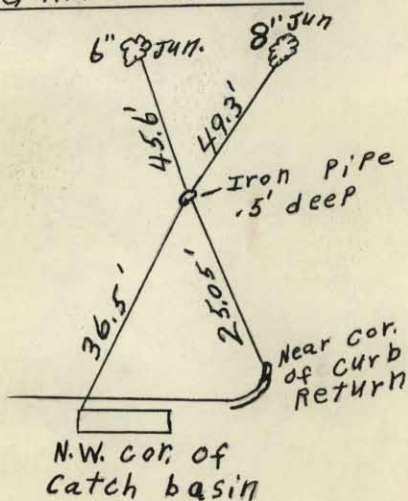 6" Jun.
8" Jun
45.6'
49.3'
Iron Pipe
.5' deep
36.5'
25.05'
Near cor.
of Curb
Return
N.W. cor. of
Catch basin